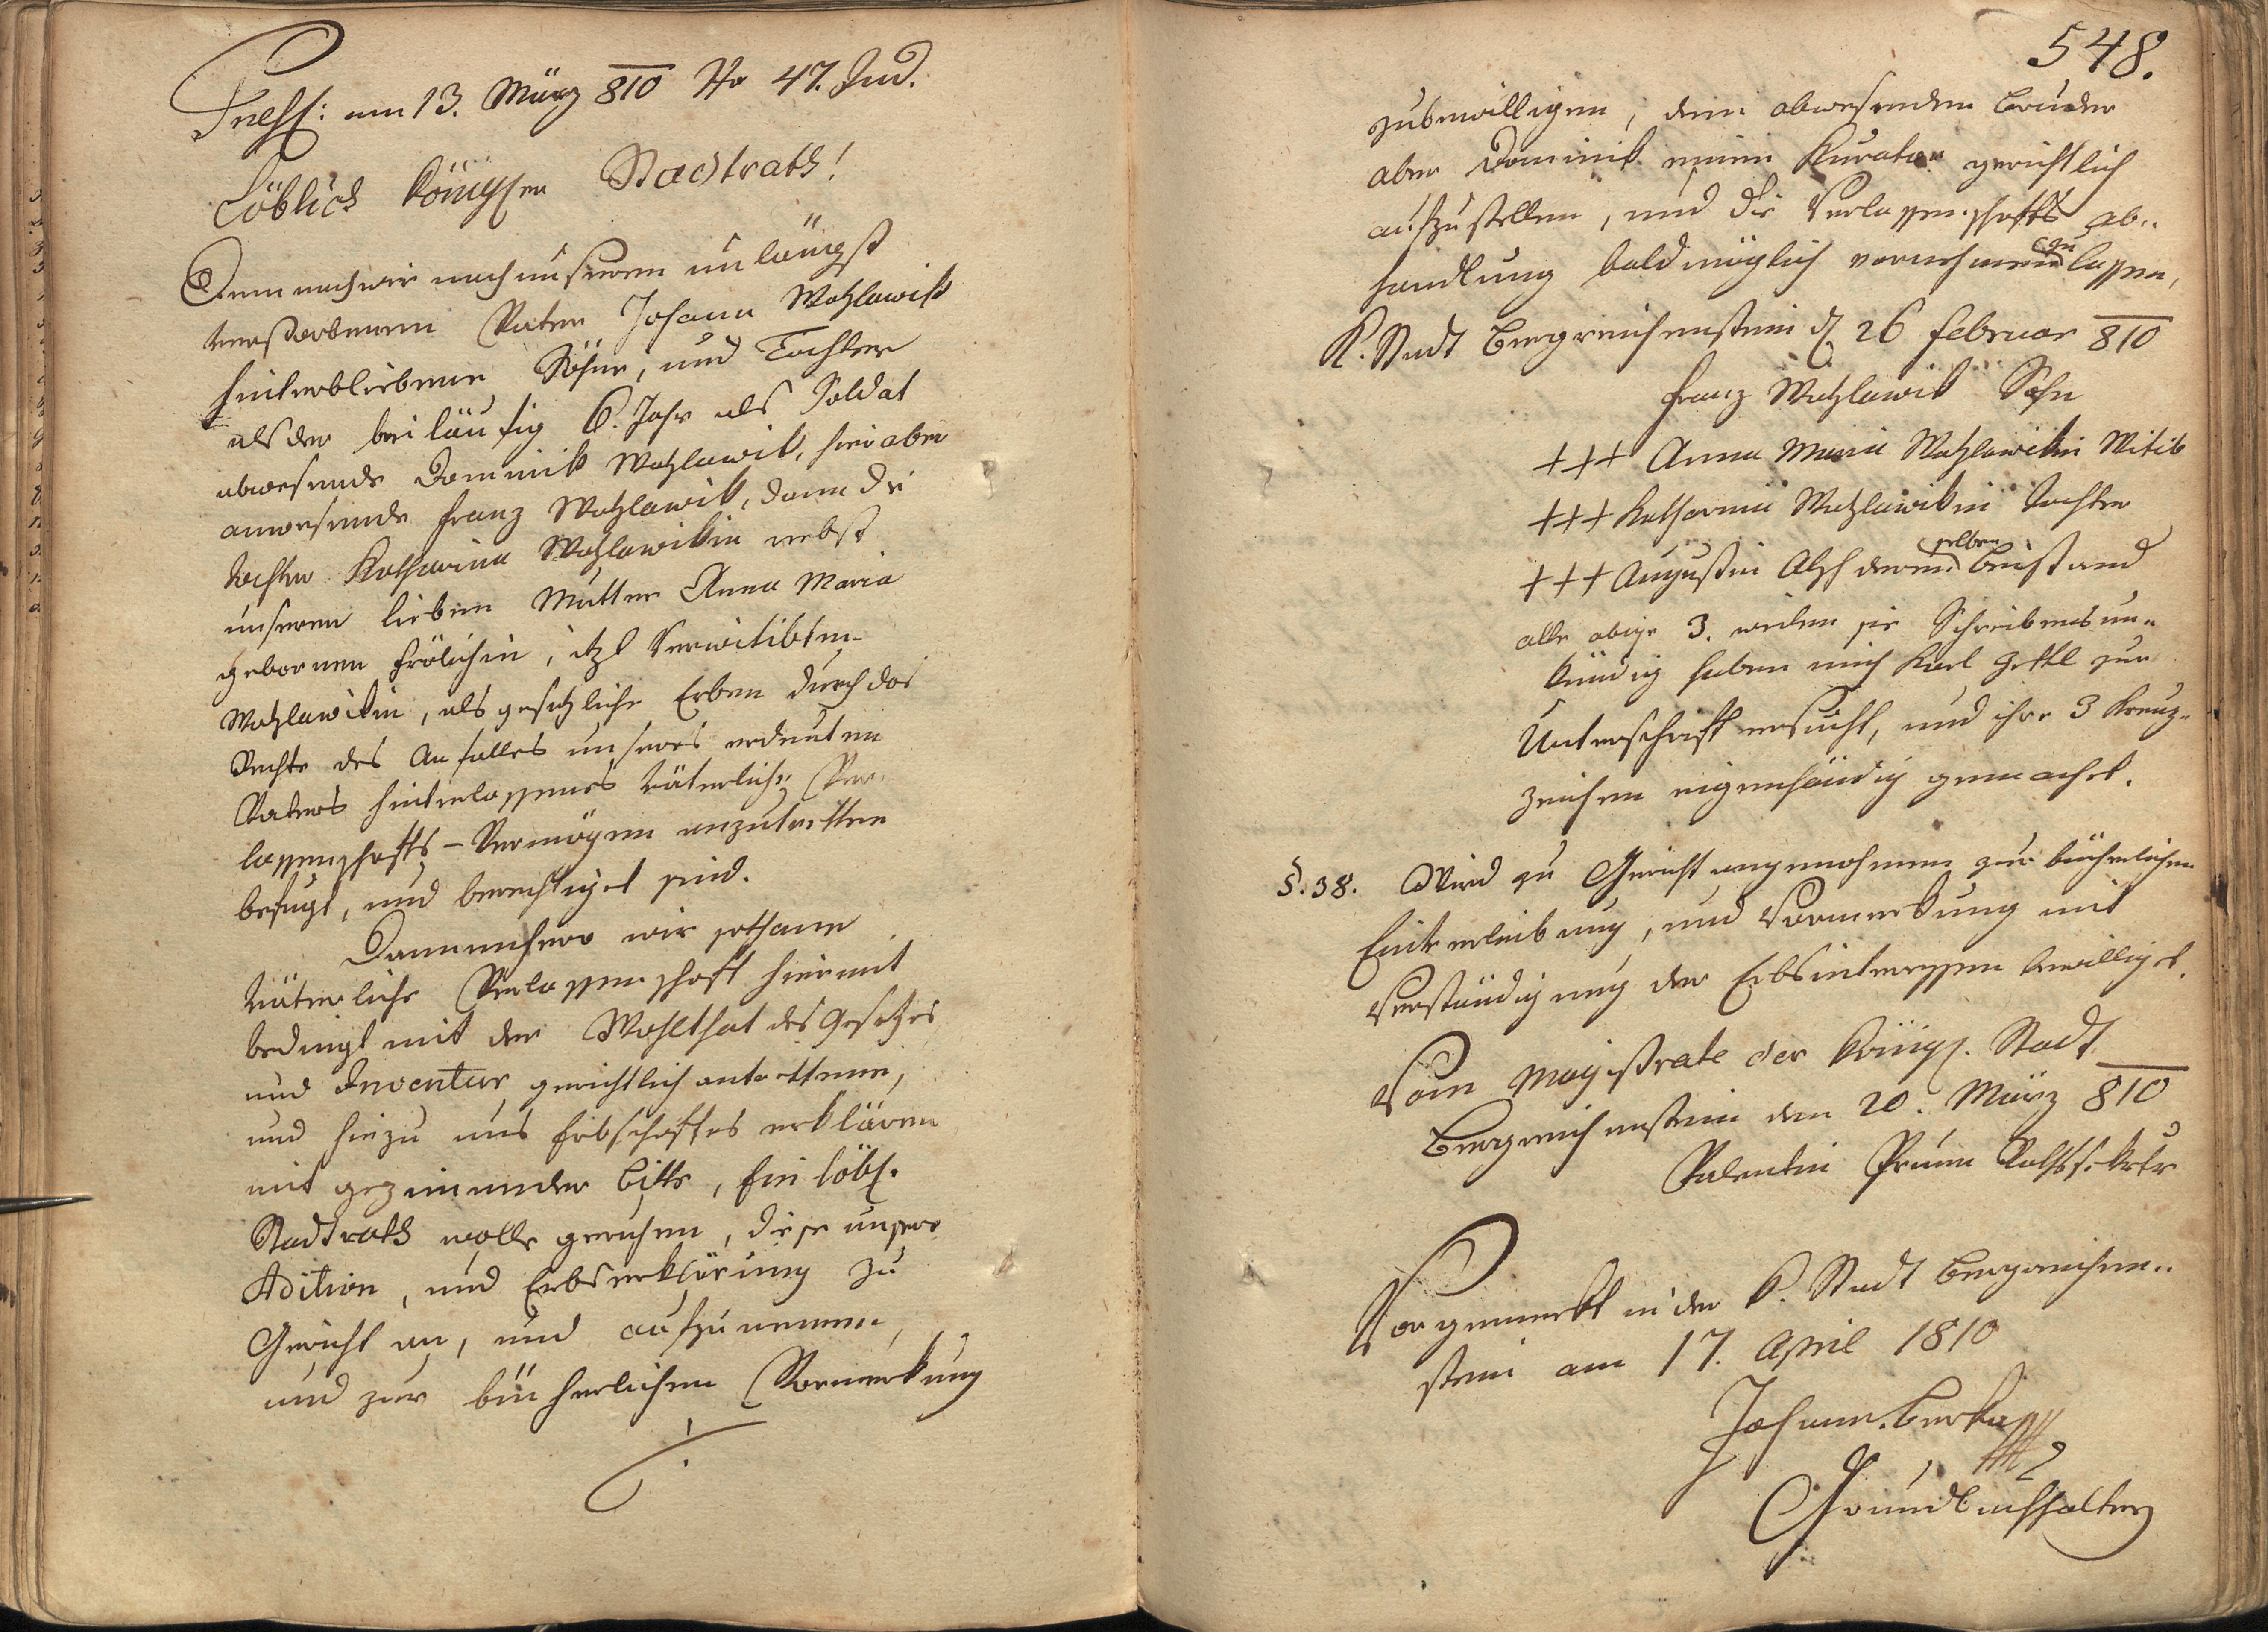 Præs: am 13. März 810 No 47. Jud.
Löblich königlen Stadtrath!
Demnach wir nach unserem unlängst
verstorbenen Vater Johann Wozlawik
hinterbliebene Söhne, und Tochter
als der beiläufig 6. Jahr als Soldat
abwesende Dominik Wozlawik, hier aber
anwesende Franz Wozlawik, dann die
Tochter Katharina Wozlawikin nebst
unserer lieben Mutter Anna Maria
gebornen Frölichin, itzt Verwitibten
Wozlawikin, als gesetzliche Erben durch das
Recht des Anfalles unseres erdeuten
Vaters hinterlassenes väterliche Ver-
lassenschafts-Vermögen anzutretten
befugt, und berechtiget sind.
Dannenhero wir sothane
väterliche Verlassenschaft hiermit
bedingt mit der Wohlthat des Gesetzes
und Inventur gerichtlich antrettenn,
und hiezu uns Erbschaftes erklären
mit geziemender Bitte, Ein löbl.
Stadtrath wolle geruhen, diese unsere
Adition, und Erbserklärung zu
Gericht an, und aufzunemen,
und zur bücherlichen Vormerkung
548.
zubewilligen, dem abwesenden Bruder
aber Dominik einen Kurator gerichtlich
aufzustellen, und die Verlassenschafts ab-
handlung baldmöglich vornehmen zu lassen,
K. Stadt Bergreichenstein d 26 Februar 810
Franz Wozlawik Sohn
+++ Anna Maria Wozlawikin Witib
+++ Katharina Wozlawikin Tochter
+++ Augustin derenselben Beistand
alle obige 3. weilen sie Schreibens un-
kündig haben mich Karl zur
Unterschrift ersucht, und ihre 3 Kreuz-
zeichen eigenhändig gemachet.
§. 38. Wird zu Gericht angenohmen zur bücherlichen
Einverleibung, und Vormerkung mit
Verständigung der Erbsinteressen bewilliget.
Vom Magistrate der königl. Stadt
Bergreichenstein den 20. März 810
Valentin Prunn Rathssekretr
Vorgemerkt in der k. Stadt Bergreichen-
stein am 17. April 1810
Johann Berka
Grundbuchhalter